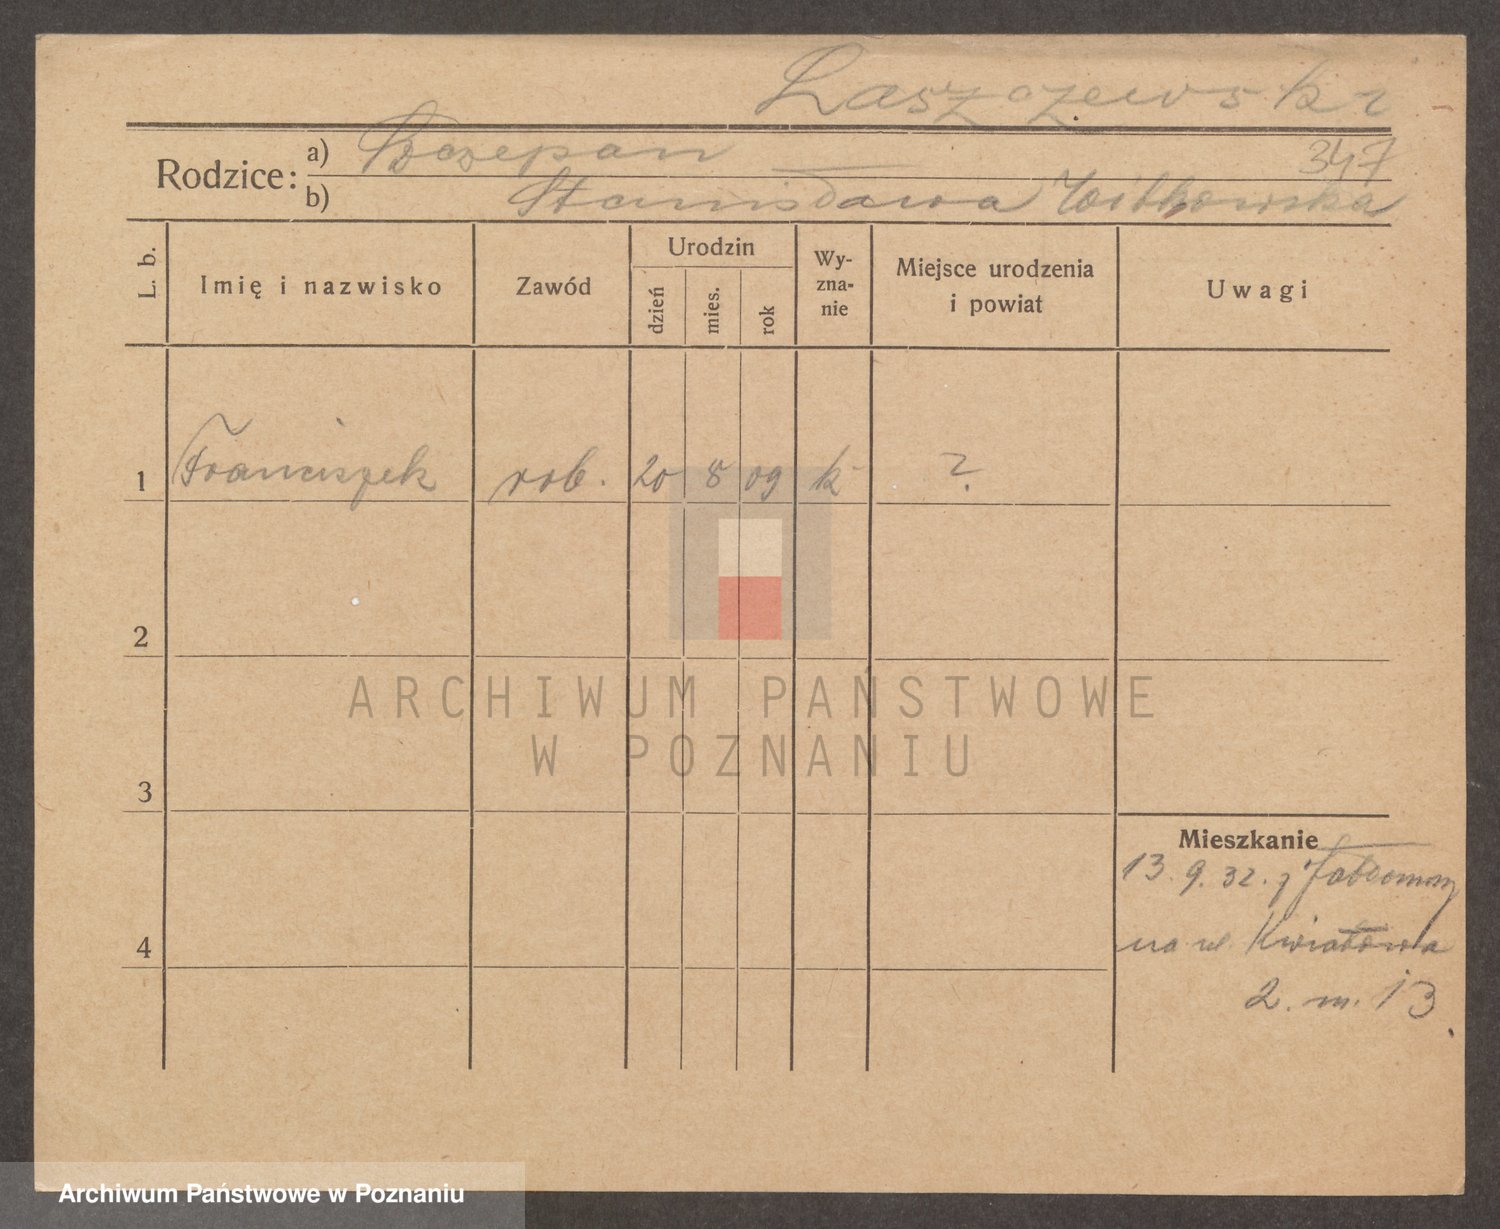 Laszczewski
347
Rodzice: a) Szczepan
b) Stanisława Witkowska
L. b.
Imię i nazwisko
Zawód
Urodzin
dzień
mies.
rok
Wy-
zna-
nie
Miejsce urodzenia
i powiat
Uwagi
1 Franciszek rob. 20 8 09 k ?
2
3
4
Mieszkanie
13. 9. 32. z
na ul. Kwiatowa
2. m. 13
ARCHIWUM PAŃSTWOWE
W POZNANIU
Archiwum Państwowe w Poznaniu